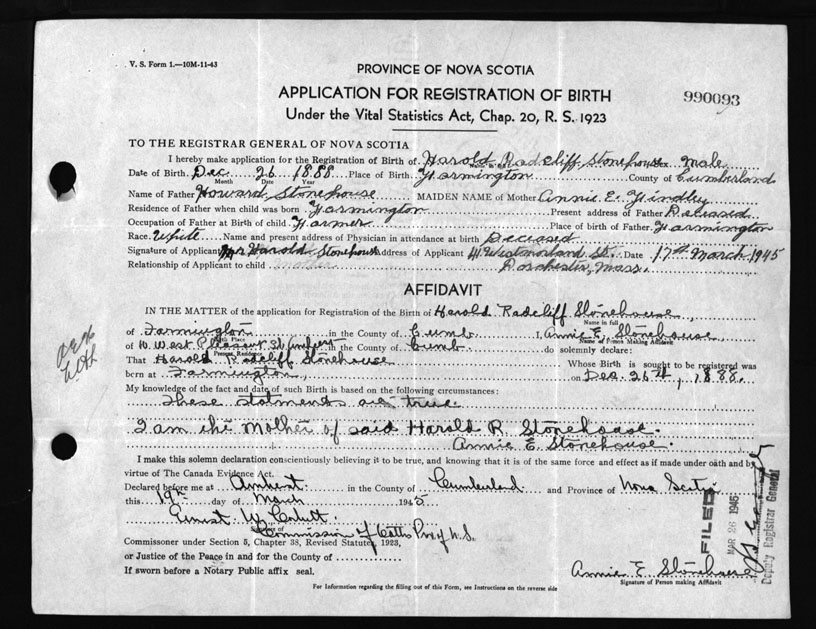 V. S. Form 1.—10M-11-43
PROVINCE OF NOVA SCOTIA
APPLICATION FOR REGISTRATION OF BIRTH
990093
Under the Vital Statistics Act, Chap. 20, R. S. 1923
TO THE REGISTRAR GENERAL OF NOVA SCOTIA
I hereby make application for the Registration of Birth of Harold Radcliff Stonehouse Sex Male
Date of Birth. Dec 26 1888 Place of Birth. Farmington County of Cumberland
Month Date Year
Name of Father Howard Stonehouse MAIDEN NAME of Mother Annie E. Findley
Residence of Father when child was born Farmington Present address of Father Deceased
Occupation of Father at Birth of child. Farmer Place of birth of Father. Farmington
Race. White Name and present address of Physician in attendance at birth Deceased
Signature of Applicant Mr Harold Stonehouse Address of Applicant 41 Westmorland St. Date 17th March 1945
Relationship of Applicant to child Dorchester, Mass.
AFFIDAVIT
IN THE MATTER of the application for Registration of the Birth of Harold Radcliff Stonehouse
Name in full
of Farmington in the County of Cumb. I, Annie E. Stonehouse,
Birth Place Name of Person Making Affidavit
of 10 West Pleasant St Amherst in the County of Cumb. do solemnly declare:
Present Residence
That Harold Radcliff Stonehouse Whose Birth is sought to be registered was
born at Farmington, on Dec. 26th, 1888.
My knowledge of the fact and date of such Birth is based on the following circumstances:
These statments are true.
I am the Mother of said Harold R. Stonehouse.
Annie E. Stonehouse.
I make this solemn declaration conscientiously believing it to be true, and knowing that it is of the same force and effect as if made under oath and by
virtue of The Canada Evidence Act.
Declared before me at Amherst in the County of Cumberland and Province of Nova Scotia
this 19th day of March 1945
Ernest W.
Signature of
Commission of Oaths Prov N.S.
Commissioner under Section 5, Chapter 38, Revised Statutes, 1923,
or Justice of the Peace in and for the County of
If sworn before a Notary Public affix seal.
Annie E Stonehouse
Signature of Person making Affidavit
For Information regarding the filling out of this Form, see Instructions on the reverse side
FILED
MAR 26 1945
Deputy Registrar General